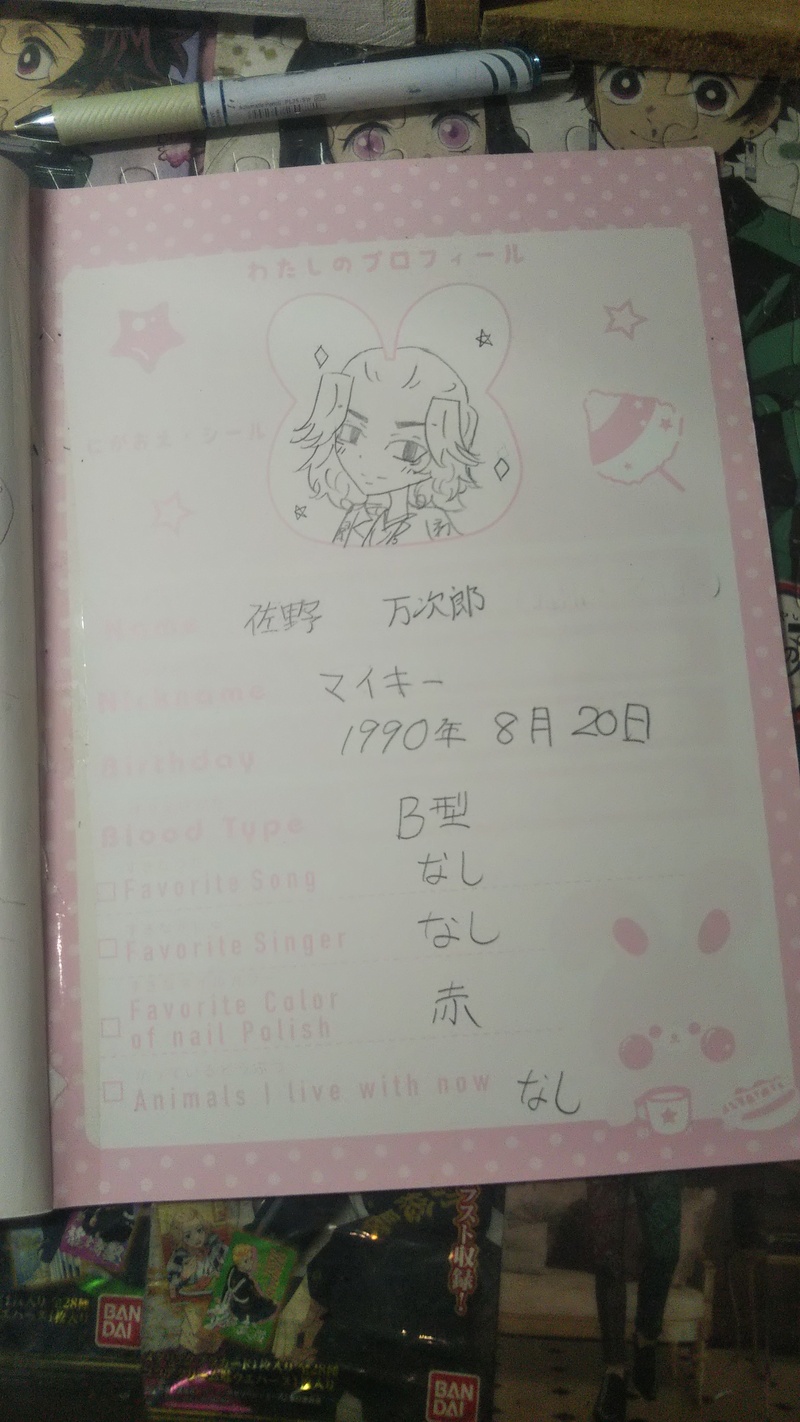 わたしのプロフィール
にがおえ・シール
Name 佐野 万次郎
Nickname マイキー
Birthday 1990年 8月 20日
Blood Type B型
Favorite Song なし
Favorite Singer なし
Favorite Color
of nail Polish 赤
Animals I live with now なし
BAN
DAI
BAN
DAI